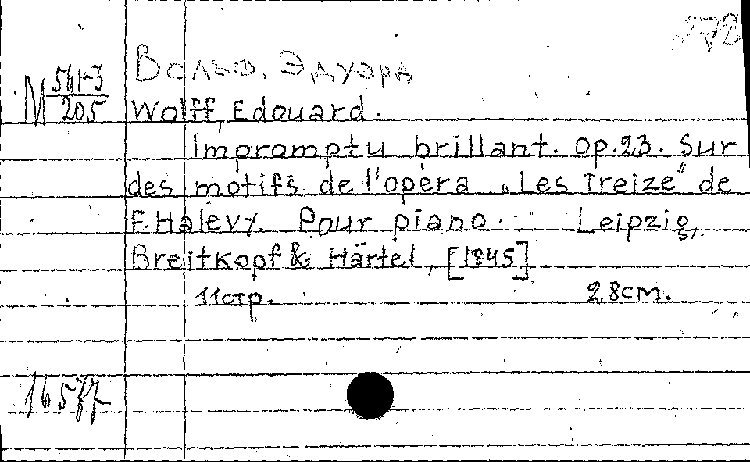 Вольф, Эдуард
М 561-3
205
Wolff, Edouard.
Impromptu brillant. Op. 23. Sur
des motifs de l'opéra „Les Treize" de
F. Halévy. Pour piano. Leipzig,
Breitkopf & Härtel, [1845]
11 стр. 28 см.
16577